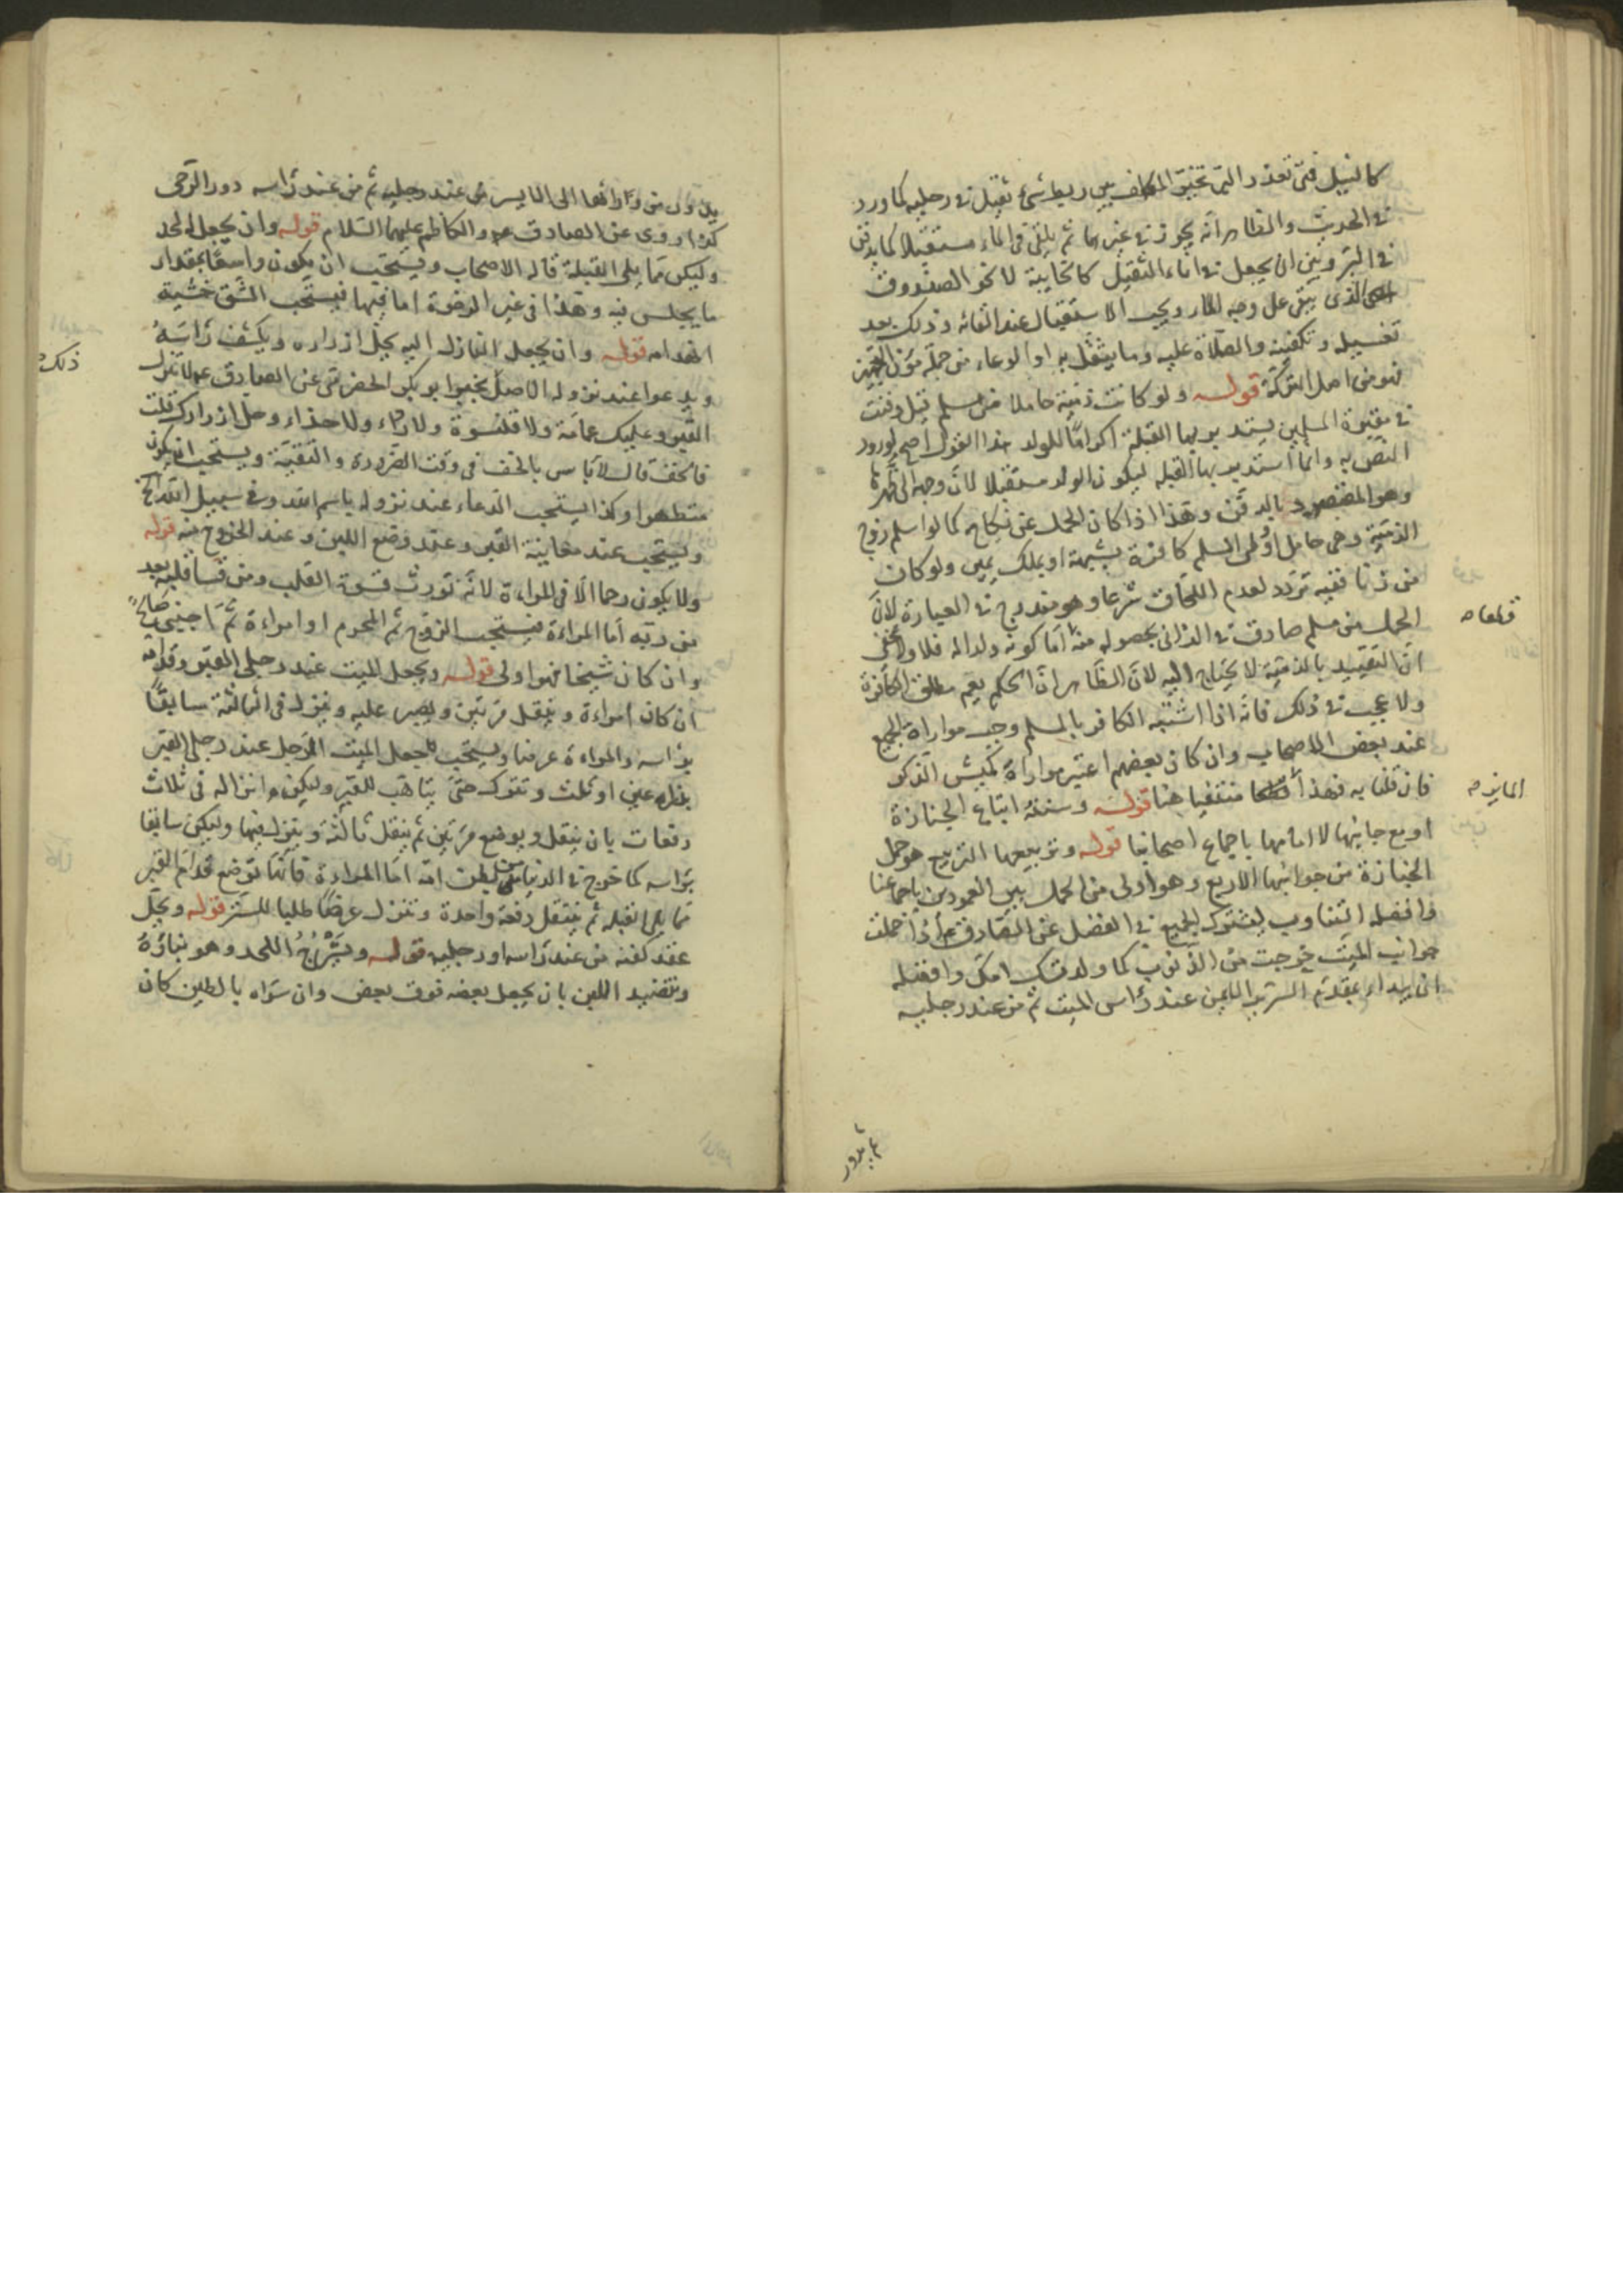 كالنيل فمتى تعذر البر تخيّر المكلف بين ربط شئ ثقيل في رجليه كما ورد
في الحديث والظاهر انه يجوز في غيرها ثم يلقى في الماء مستقبلا كما يدفن
في البرّ وبين ان يجعل في اناء الثقيل كالخابية لا نحو الصندوق
الذي يبقى على وجه الماء ويجب الاستقبال عند القائه وذلك بعد
تغسيله وتكفينه والصلاة عليه وما يثقل به او الوعاء من جملة مؤن التجهيز
فهو من اصل التركة قوله ولو كانت ذمّية حاملا من مسلم قيل دفنت
في مقبرة المسلمين يستدبر بها القبلة اكراما للولد هذا القول اصح لورود
النص به وانما استدبر بها القبله ليكون الولد مستقبلا لانّ وجهه الى ظهرها
وهو المقصود بالدفن وهذا اذا كان الحمل عن نكاح كما لو اسلم زوج
الذمّية وهي حامل او وطى المسلم كافرة بشبهة او بملك يمين ولو كان
من زنا ففيه تردد لعدم اللحاق شرعا وهو مندرج في العبارة لانّ
الحمل من مسلم صادق في الزاني بحصوله منه اما كونه ولدا له فلا ولا يخفى
قطعا
انّ التقييد بالذمّية لا يحتاج اليه لانّ الظاهر ان الحكم يعم مطلق الكافرة
ولا عجب في ذلك فانه اذا اشتبه الكافر بالمسلم وجب مواراة الجميع
عند بعض الاصحاب وان كان بعضهم اعتبر مواراة كميش الذكر
فان قلنا به فهذا منتفيا هنا قوله وسننه اتباع الجنازة
او مع جانبيها لا امامها باجماع اصحابنا قوله وتربيعها التربيع هو حمل
الجنازة من جوانبها الاربع وهو اولى من الحمل بين العمودين باجماعنا
وافضله التناوب ليشترك الجميع في الفضل عن الصادق ع اذا حملت
جوانب الميت خرجت من الذنوب كما ولدتك امك وافضله
ان يبداء بمقدم السرير الايمن عند رأس الميت ثم من عند رجليه
ثم يدور
يدور من ورائها الى الايسر من عند رجليه ثم من عند رأسه دور الرحى
كذا روى عن الصادق ع والكاظم عليهما السلام قوله وان يجعل له لحد
وليكن مما يلي القبلة قاله الاصحاب ويستحب ان يكون واسعًا بمقدار
ما يجلس فيه وهذا في غير الرخوة اما فيها فيستحب الشق خشية
انهدامه قوله وان يجعل النازل اليه يحل ازراره ويكشف رأسهُ
ذلك
ويدعوا عند نزوله الاصل بخبر ابو بكر الحضرمي عن الصادق ع لا تنزل
القبر وعليك عمامة ولا قلنسوة ولا رداء ولا حذاء وحل ازرارك قلت
فالخف قال لا باس بالخف في وقت الضرورة والتقيّة ويستحب ان يكون
متطهرا وكذا يستحب الدعاء عند نزوله باسم الله وفي سبيل الله الخ
ويستحب عند معاينة القبر وعند وضع اللبن وعند الخروج منه قوله
ولا يكون رحما الّا في المراءة لانه تورث قسوة القلب ومن قسا قلبه بعد
من ربّه اما المراءة فيستحب الزوج ثم المحرم او امراءة ثمّ اجنبى صالح
وان كان شيخا فهو اولى قوله ويجعل الميت عند رجلى القبر وقدامه
ان كان امراءة وينقل مرتين ويصبر عليه وينزل في الثالثة سابقًا
برأسه والمراءة عرضا ويستحب جعل الميت الرجل عند رجلى القبر
بذراعين او ثلث وتترك حتى يتاهّب للقبر وليكن انزاله في ثلاث
دفعات بان ينقل ويوضع مرتين ثم ينقل ثالثة وينزل فيها وليكن سابقا
برأسه كما خرج في الدنيا من بطن امّه اما المراءة فانّها توضع قدّام القبر
مما يلي القبله ثم تنتقل دفعة واحدة وتنزل عرضًا طلبا للستر قوله ويحلّ
عقد كفنه من عند رأسه ورجليه قوله ويشرج اللحد وهو بناؤه
وتنضيد اللبن بان يجعل بعضه فوق بعض وان سوّاه بالطين كان